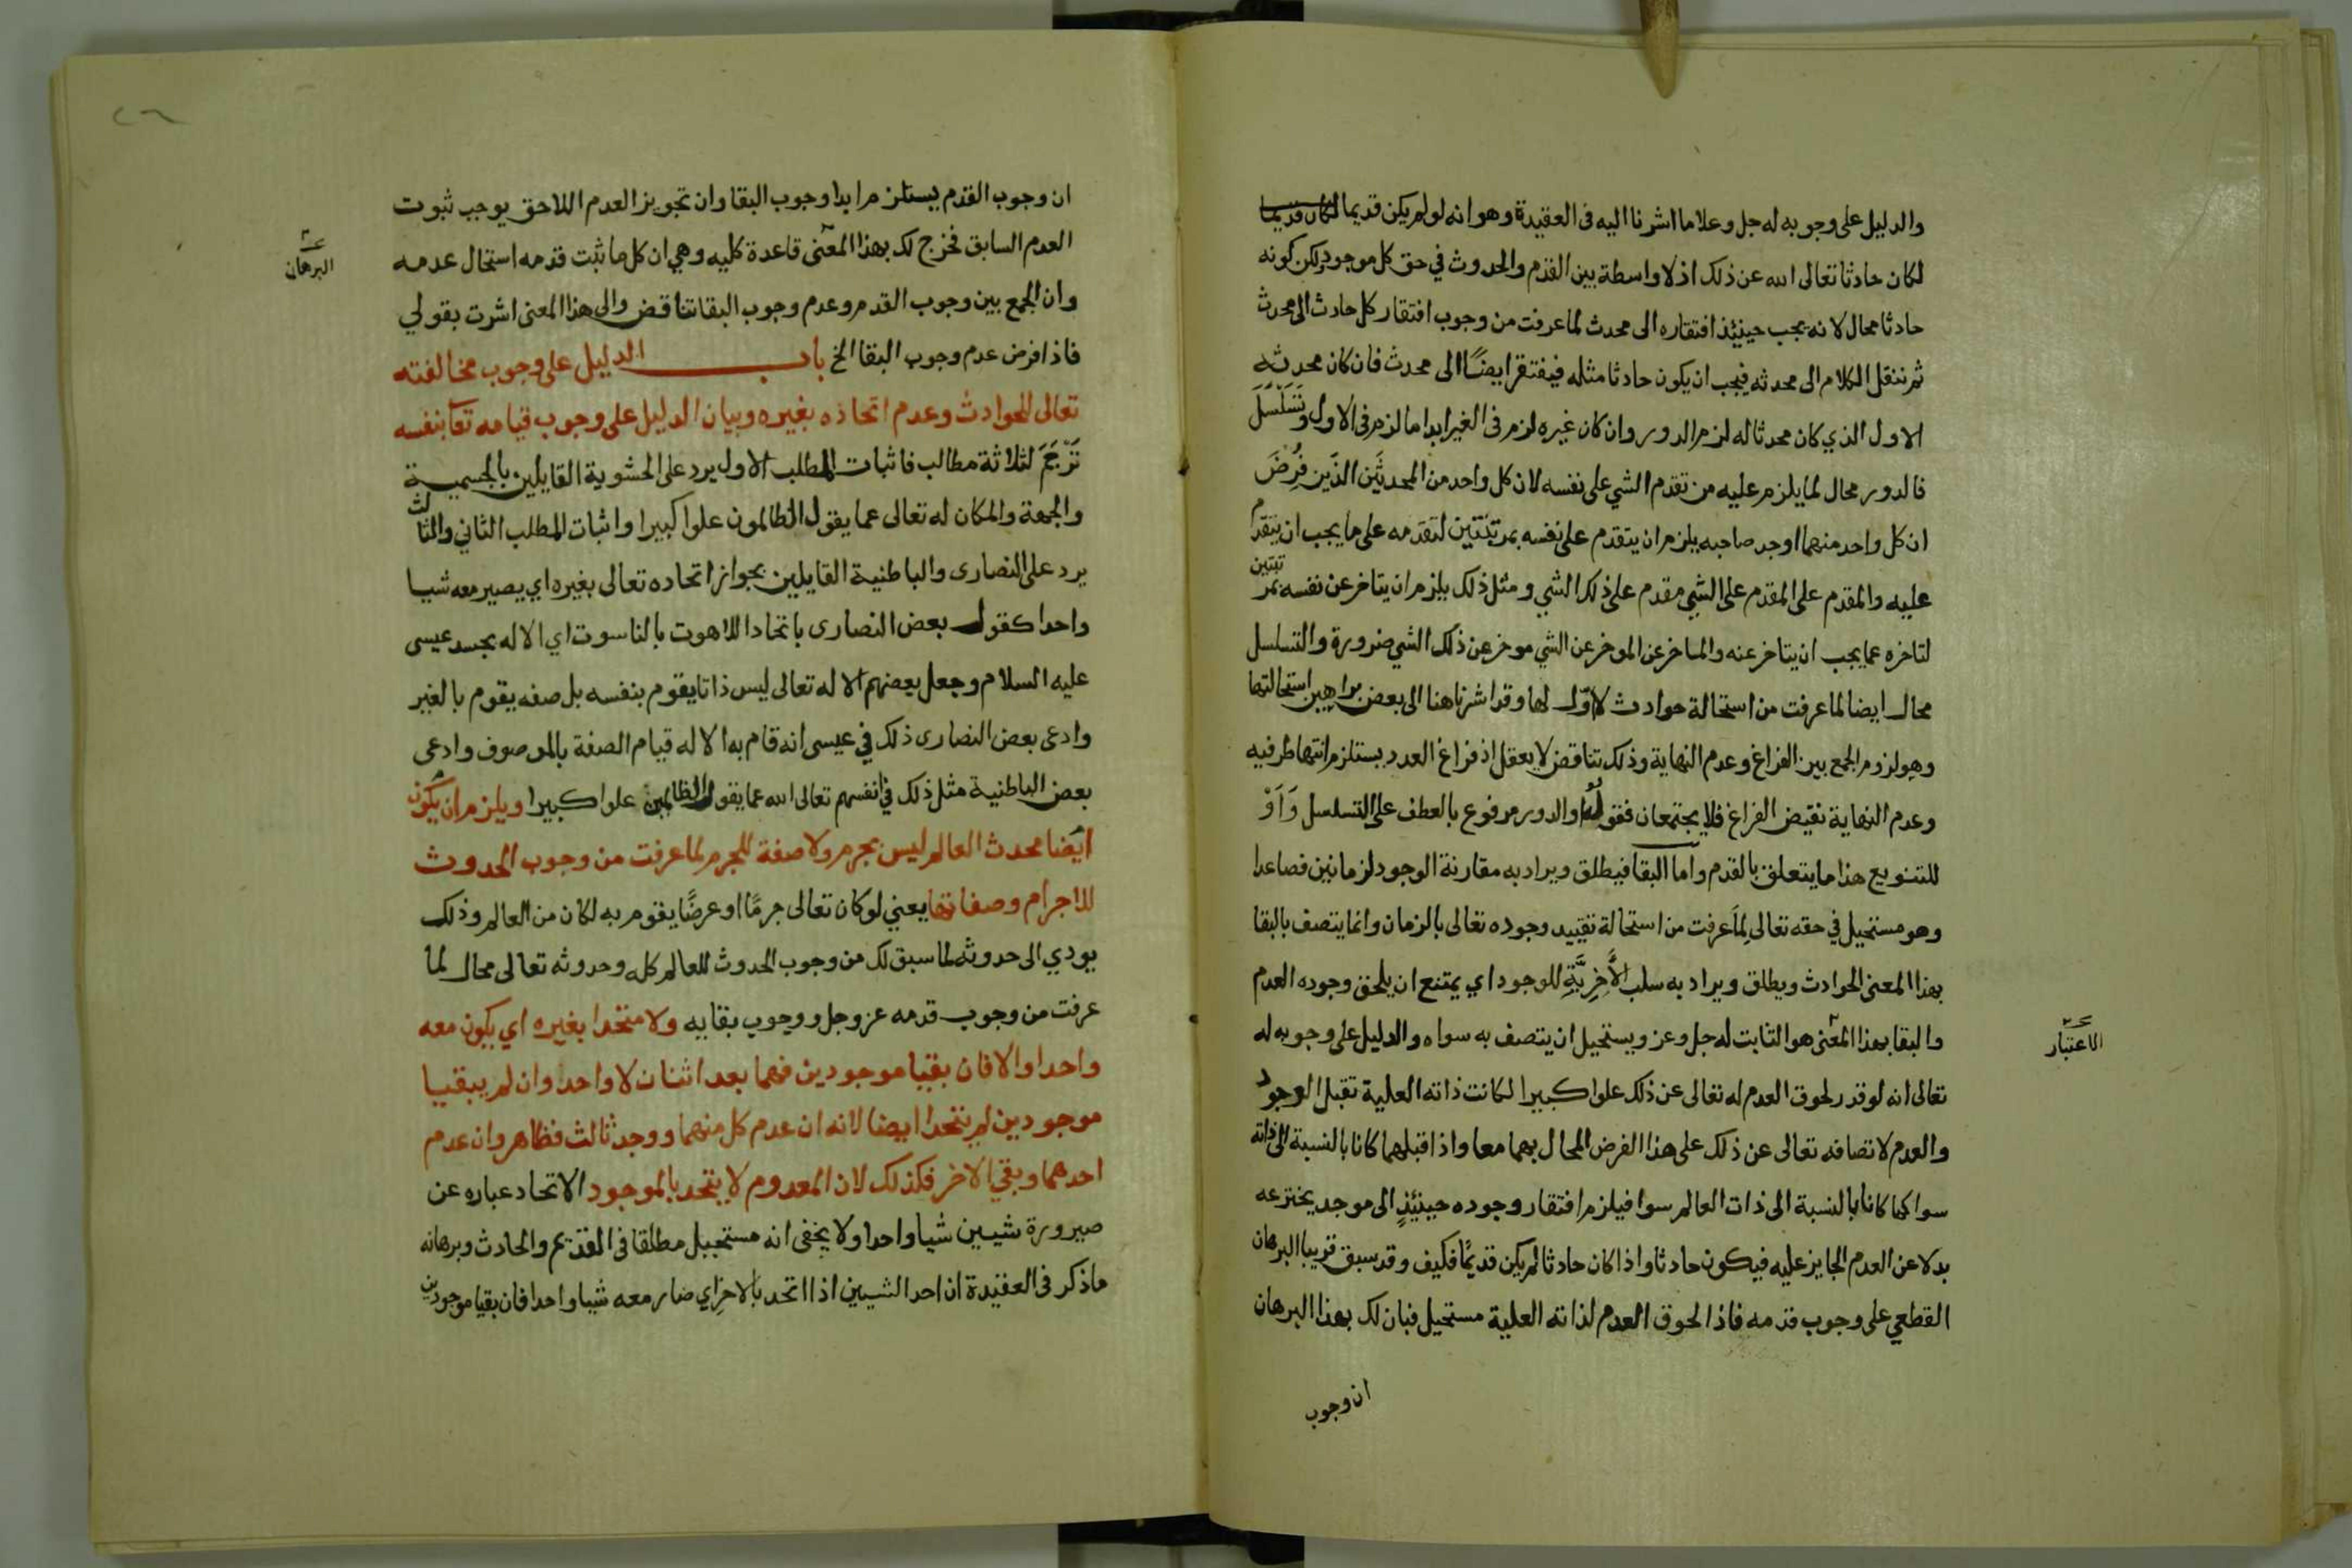 والدليل على وجوبه له جل وعلا ما اشرنا اليه في العقيدة وهو انه لو لم يكن قديما لكان قديما
لكان حادثا تعالى الله عن ذلك اذ لا واسطة بين القدم والحدوث في حق كل موجود لكن كونه
حادثا محال لانه يجب حينيذ افتقاره الى محدث لما عرفت من وجوب افتقار كل حادث الى محدث
ثم ننقل الكلام الى محدثه فيجب ان يكون حادثا مثله فيفتقر ايضًا الى محدث فان كان محدثه
الاول الذي كان محدثا له لزم الدور وان كان غيره لزم في الغير ابدا ما لزم في الاول وتَسَلْسَلَ
فالدور محال لما يلزم عليه من تقدم الشي على نفسه لان كل واحد من المحدثَين الذَين فُرِضَ
ان كل واحد منهما اوجد صاحبه يلزم ان يتقدم على نفسه بمرتبتين لتقدمه على ما يجب ان يتقدم
عليه والمقدم على المقدم على الشي مقدم على ذلك الشي ومثل ذلك يلزم ان يتاخر عن نفسه بمرتبتين
لتاخره عما يجب ان يتاخر عنه والمتاخر عن الموخر عن الشي موخر عن ذلك الشي ضرورة والتسلسل
محال ايضا لما عرفت من استحالة حوادث لا اول لها وقد اشرنا هنا الى بعض براهين استحالتها
وهو لزوم الجمع بين الفراغ وعدم النهاية وذلك تناقض لا يعقل اذ فراغ العدد يستلزم انتها طرفيه
وعدم النهاية نقيض الفراغ فلا يجتمعان فقوله والدور مرفوع بالعطف على التسلسل وَاَوْ
للتنويع هذا ما يتعلق بالقدم واما البقا فيطلق ويراد به مقارنة الوجود لزمانين فصاعدا
وهو مستحيل في حقه تعالى لِمَا عرفت من استحالة تقييد وجوده تعالى بالزمان وانما يتصف بالبقا
بهذا المعنى الحوادث ويطلق ويراد به سلب الآخِرِيَّةِ للوجود اي يمتنع ان يلحق وجوده العدم
والبقا بهذا المعنى هو الثابت له جل وعز ويستحيل ان يتصف به سواه والدليل على وجوبه له
الاعتبار
تعالى انه لو قدر لحوق العدم له تعالى عن ذلك علوا كبيرا لكانت ذاته العلية تقبل الوجود
والعدم لاتصافه تعالى عن ذلك على هذا الفرض المحال بهما معا واذا قبلهما كانا بالنسبة الى ذاته
سوا كما كانا بالنسبة الى ذات العالم سوا فيلزم افتقار وجوده حينيذٍ الى موجد يخترعه
بدلا عن العدم الجايز عليه فيكون حادثا واذا كان حادثا لم يكن قديمًا فكيف وقد سبق قريبا البرهان
القطعي على وجوب قدمه فاذا لحوق العدم لذاته العلية مستحيل فبان لك بهذا البرهان
ان وجوب
٢٦
ان وجوب القدم يستلزم ابدا وجوب البقا وان تجويز العدم اللاحق يوجب ثبوت
العدم السابق فخرج لك بهذا المعنى قاعدة كليه وهي ان كل ما ثبت قدمه استحال عدمه
البرهان
وان الجمع بين وجوب القدم وعدم وجوب البقا تناقض والى هذا المعنى اشرت بقولي
فاذا فرض عدم وجوب البقا الخ باب الدليل على وجوب مخالفته
تعالى للحوادث وعدم اتحاذه بغيره وبيان الدليل على وجوب قيامه تعا بنفسه
تَرْجَمَ لثلاثة مطالب فاثبات المطلب الاول يرد على الحشوية القايلين بالجسمية
والجهة والمكان له تعالى عما يقول الظالمون علوا كبيرا واثبات المطلب الثاني والثالث
يرد على النصارى والباطنية القايلين بجواز اتحاده تعالى بغيره اي يصير معه شيا
واحدا كقول بعض النصارى باتحاد اللاهوت بالناسوت اي الاله بجسد عيسى
عليه السلام وجعل بعضهم الاله تعالى ليس ذاتا يقوم بنفسه بل صفه يقوم بالغير
وادعى بعض النصارى ذلك في عيسى انه قام به الاله قيام الصفة بالموصوف وادعى
بعض الباطنية مثل ذلك في انفسهم تعالى الله عما يقول الظالمين علوا كبيرا ويلزم ان يكون
ايضا محدث العالم ليس بجرم ولا صفة للجرم لما عرفت من وجوب الحدوث
للاجرام وصفاتها يعني لو كان تعالى جرمًا او عرضًا يقوم به لكان من العالم وذلك
يودي الى حدوثه لما سبق لك من وجوب الحدوث للعالم كله وحدوثه تعالى محال لما
عرفت من وجوب قدمه عز وجل ووجوب بقايه ولا متحدا بغيره اي يكون معه
واحدا والا فان بقيا موجودين فهما بعد اثنان لا واحد وان لم يبقيا
موجودين لم يتحدا ايضا لانه ان عدم كل منهما ووجد ثالث فظاهر وان عدم
احدهما وبقي الاخر فكذلك لان المعدوم لا يتحد بالموجود الاتحاد عباره عن
صيرورة شيين شيا واحدا ولا يخفى انه مستحيل مطلقا في القديم والحادث وبرهانه
ما ذكر في العقيدة ان احد الشيين اذا اتحد بالاخر اي صار معه شيا واحدا فان بقيا موجودين